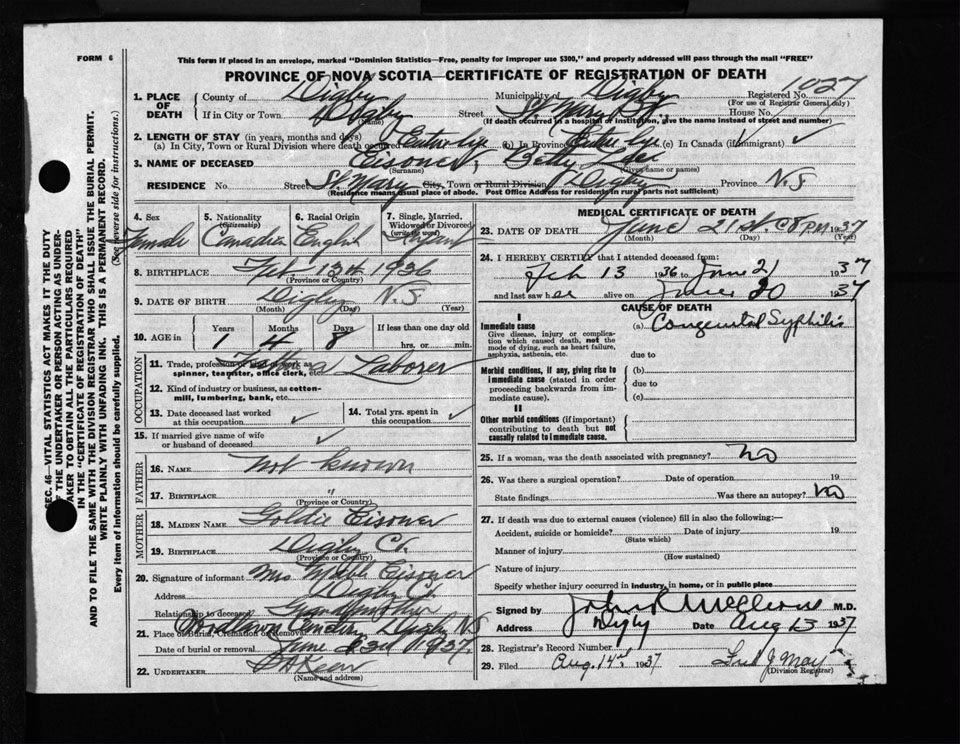 FORM 6
This form if placed in an envelope, marked "Dominion Statistics—Free, penalty for improper use $300," and properly addressed will pass through the mail "FREE"
PROVINCE OF NOVA SCOTIA—CERTIFICATE OF REGISTRATION OF DEATH
1027
1. PLACE OF DEATH
County of Digby Municipality of Digby Registered No.
(For use of Registrar General only)
If in City or Town Digby Street St. Mary St. House No.
(Name) (If death occurred in a hospital or institution, give the name instead of street and number)
2. LENGTH OF STAY (in years, months and days)
(a) In City, Town or Rural Division where death occurred Entire Life (b) In Province Entire Life (c) In Canada (if immigrant) ✓
3. NAME OF DECEASED Eisoner, Betty
(Surname) (Given name or names)
RESIDENCE No. Street St. Mary City, Town or Rural Division Digby Province N.S
(Residence means usual place of abode. Post Office Address for residents in rural parts not sufficient)
4. Sex Female
5. Nationality (Citizenship) Canadian
6. Racial Origin English
7. Single, Married, Widowed or Divorced (write the word) Infant
8. BIRTHPLACE Feb. 13th 1936
(Province or Country)
9. DATE OF BIRTH Digby N.S.
(Month) (Day) (Year)
10. AGE in Years 1 Months 4 Days 8 If less than one day old hrs. or min.
OCCUPATION
11. Trade, profession or kind of work as spinner, teamster, office clerk, etc. Fathers Laborer
12. Kind of industry or business, as cotton-mill, lumbering, bank, etc.
13. Date deceased last worked at this occupation ✓
14. Total yrs. spent in this occupation ✓
15. If married give name of wife or husband of deceased ✓
FATHER
16. NAME not known
17. BIRTHPLACE "
(Province or Country)
MOTHER
18. MAIDEN NAME Goldie Eisoner
19. BIRTHPLACE Digby Co.
(Province or Country)
20. Signature of informant Mrs Mabel Eisoner
Address Digby Co.
Relationship to deceased Grandmother
21. Place of Burial, Cremation or Removal Digby N.S
Date of burial or removal June 23rd 1937.
22. UNDERTAKER
(Name and address)
MEDICAL CERTIFICATE OF DEATH
23. DATE OF DEATH June 21st. 8 P.M. 1937
(Month) (Day) (Year)
24. I HEREBY CERTIFY that I attended deceased from:
Feb 13 1936 to June 21 1937
and last saw her alive on June 20 1937
CAUSE OF DEATH
I
Immediate cause (a) Congenital Syphilis
Give disease, injury or complication which caused death, not the mode of dying, such as heart failure, asphyxia, asthenia, etc.
due to
Morbid conditions, if any, giving rise to immediate cause (stated in order proceeding backwards from immediate cause).
(b)
due to
(c)
II
Other morbid conditions (if important) contributing to death but not causally related to immediate cause.
25. If a woman, was the death associated with pregnancy? no
26. Was there a surgical operation? Date of operation 19
State findings Was there an autopsy? no
27. If death was due to external causes (violence) fill in also the following:—
Accident, suicide or homicide? Date of injury 19
(State which)
Manner of injury
(How sustained)
Nature of injury
Specify whether injury occurred in industry, in home, or in public place
Signed by John R McCleave M.D.
Address Digby Date Aug 13 1937
28. Registrar's Record Number
29. Filed Aug. 14th, 1937 May
(Division Registrar)
SEC. 46—VITAL STATISTICS ACT MAKES IT THE DUTY
OF THE UNDERTAKER OR PERSON ACTING AS UNDER-
TAKER TO OBTAIN ALL THE PARTICULARS REQUIRED
IN THE "CERTIFICATE OF REGISTRATION OF DEATH"
AND TO FILE THE SAME WITH THE DIVISION REGISTRAR WHO SHALL ISSUE THE BURIAL PERMIT.
WRITE PLAINLY WITH UNFADING INK. THIS IS A PERMANENT RECORD.
Every item of Information should be carefully supplied. (See reverse side for instructions.)